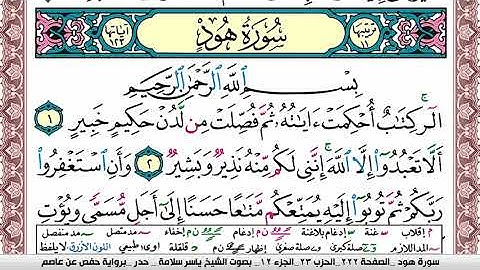 ترتيبها ١١ سُورَةُ هُودٍ آياتها ١٢٣
بِسْمِ اللَّهِ الرَّحْمَٰنِ الرَّحِيمِ
الٓر كِتَٰبٌ أُحْكِمَتْ ءَايَٰتُهُۥ ثُمَّ فُصِّلَتْ مِن لَّدُنْ حَكِيمٍ خَبِيرٍ ١
أَلَّا تَعْبُدُوٓا۟ إِلَّا ٱللَّهَ إِنَّنِى لَكُم مِّنْهُ نَذِيرٌ وَبَشِيرٌ ٢ وَأَنِ ٱسْتَغْفِرُوا۟
رَبَّكُمْ ثُمَّ تُوبُوٓا۟ إِلَيْهِ يُمَتِّعْكُم مَّتَٰعًا حَسَنًا إِلَىٰٓ أَجَلٍ مُّسَمًّى وَيُؤْتِ
م إقلاب غنة إدغام بلاغنة إخفاء مد متصل مد منفصل
المد اللازم صلة كبرى صلة صغرى إظهار ن م قلقلة أوى طبيعي اللون الأزرق لا يلفظ
سورة هود _الصفحة ٢٢٢ _الحزب ٢٣ _الجزء ١٢ _ بصوت الشيخ ياسر سلامة _ حدر _برواية حفص عن عاصم